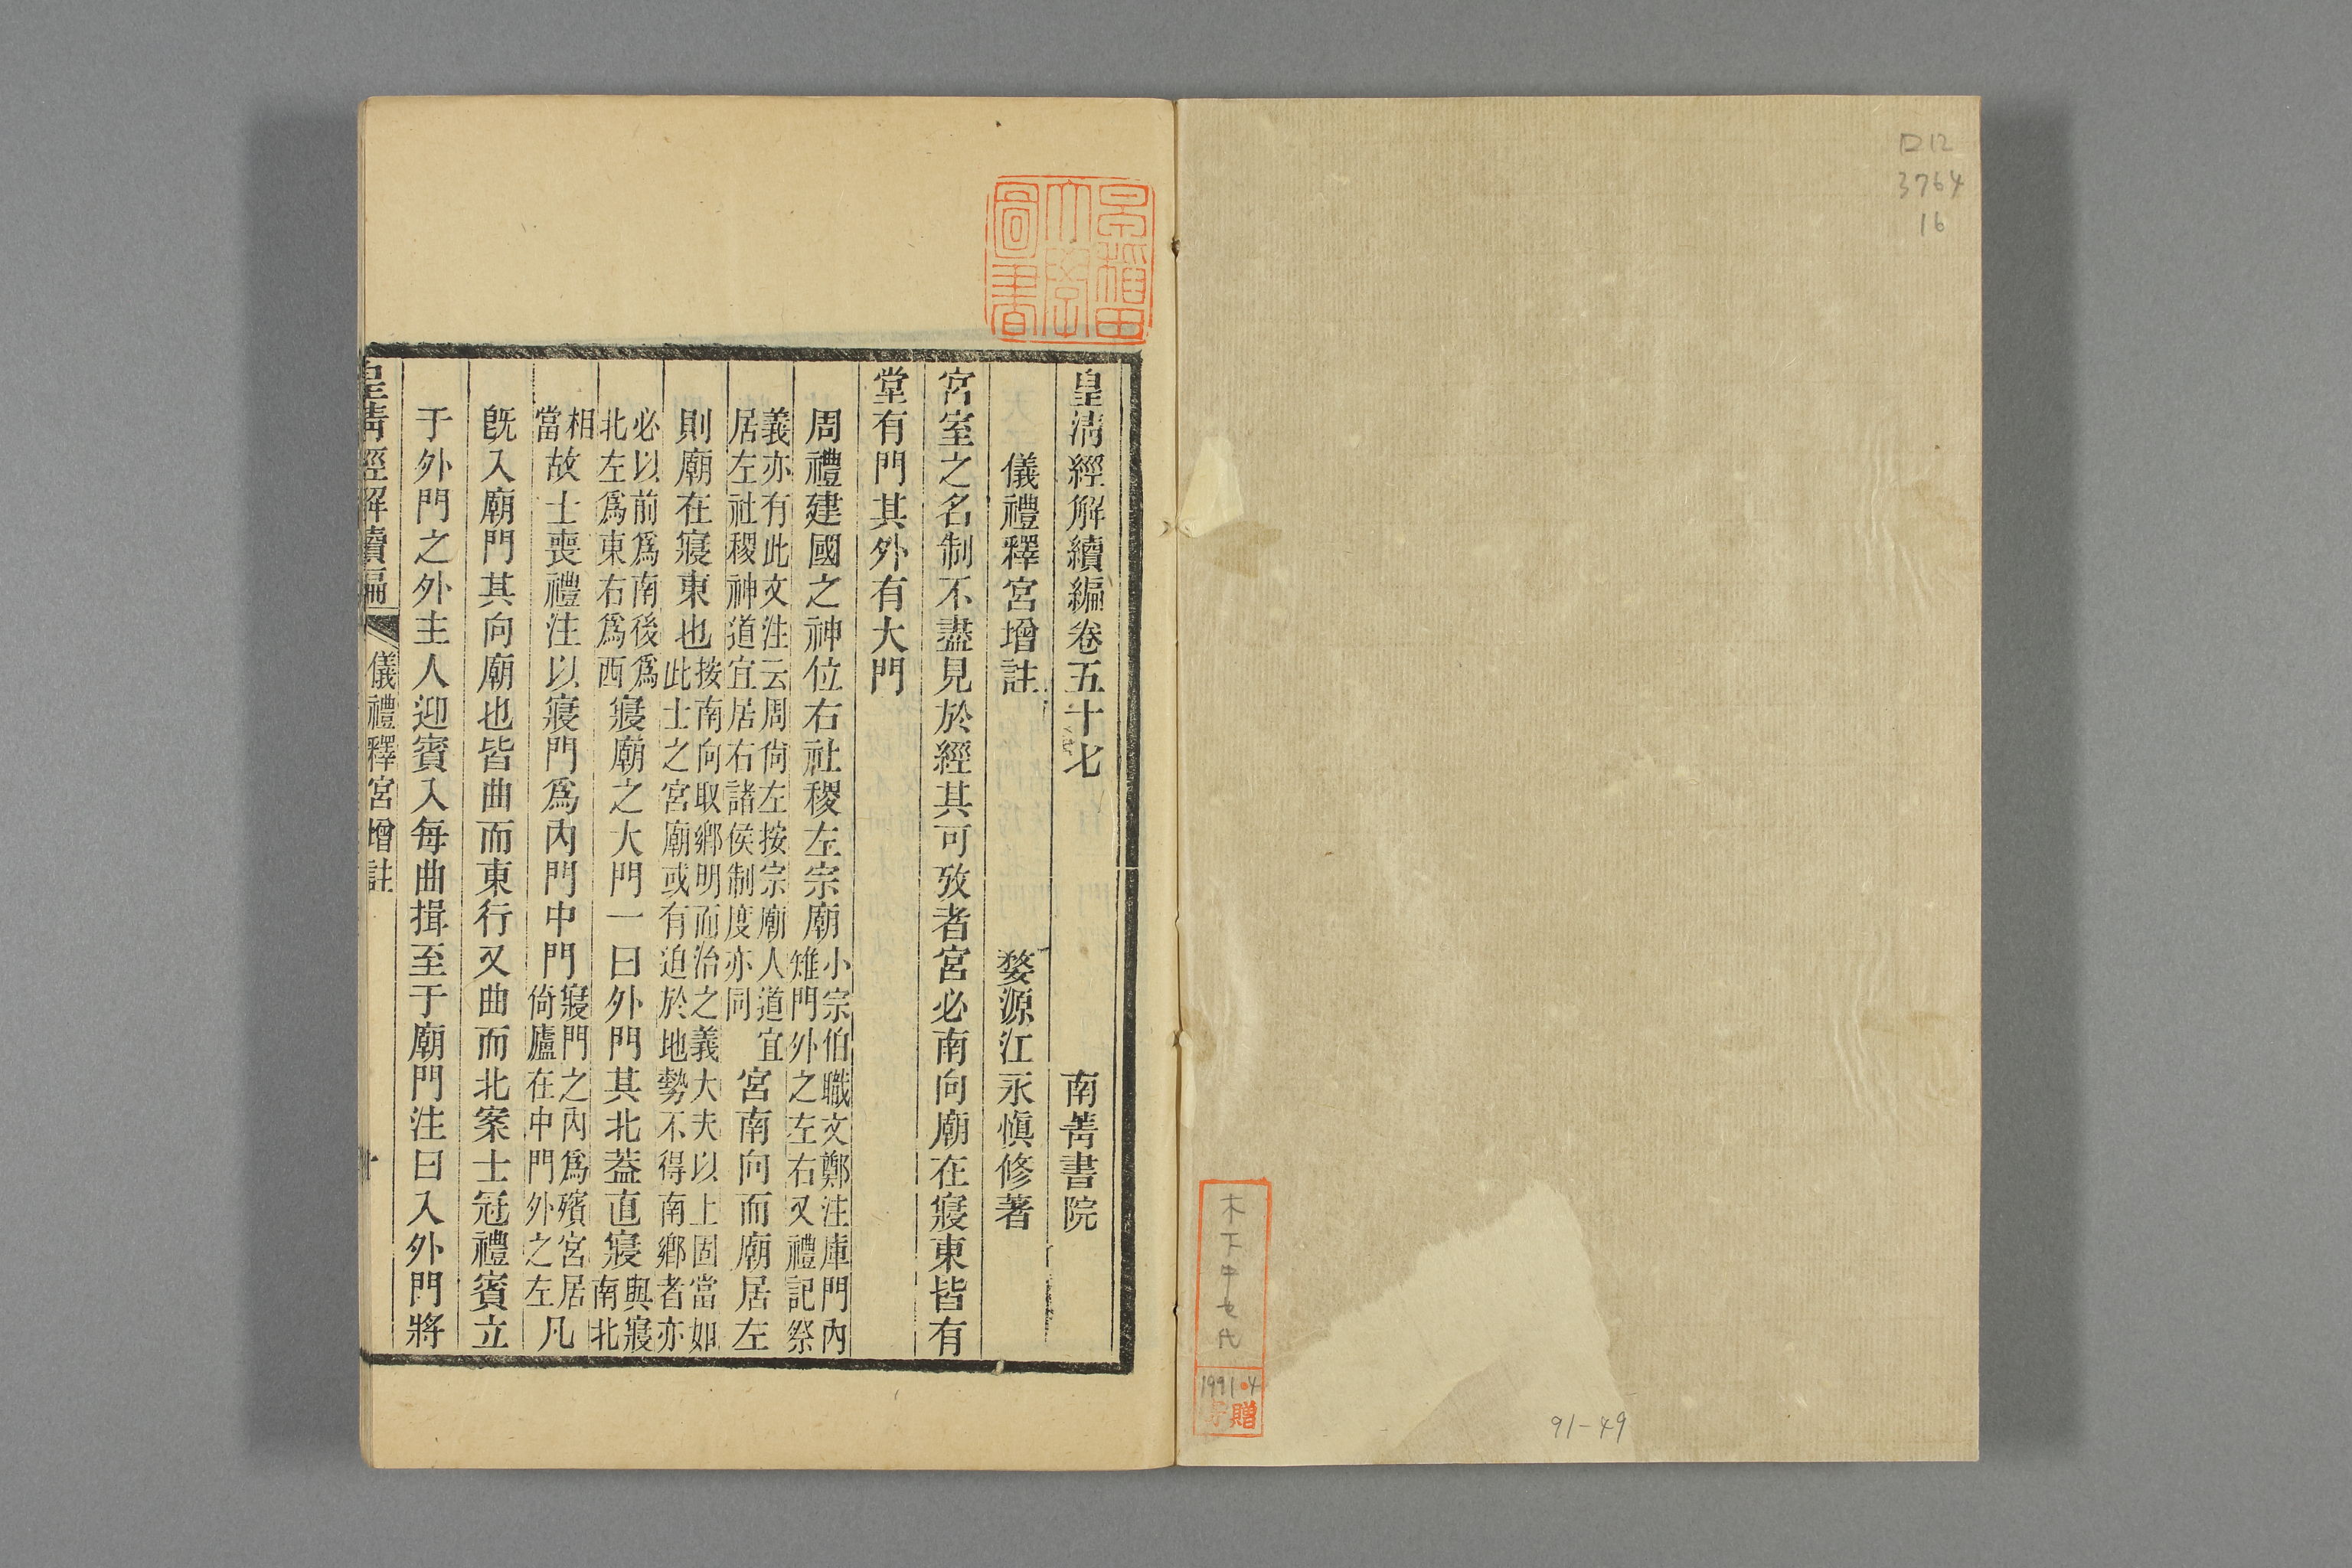 ロ12
3764
16
木下
1991・4
寄贈
91-49
早稲田大學圖書
皇清經解續編卷五十七　南菁書院
儀禮釋宮增註　婺源江永愼修著
宮室之名制不盡見於經其可攷者宮必南向廟在寢東皆有
堂有門其外有大門
周禮建國之神位右社稷左宗廟小宗伯職文鄭注庫門內雉門外之左右又禮記祭
義亦有此文注云周尙左按宗廟人道宜居左社稷神道宜居右諸侯制度亦同宮南向而廟居左
則廟在寢東也按南向取鄉明而治之義大夫以上固當如此士之宮廟或有迫於地勢不得南鄉者亦
必以前爲南後爲北左爲東右爲西寢廟之大門一曰外門其北葢直寢與寢南北
相當故士喪禮注以寢門爲內門中門寢門之內爲殯宮居倚廬在中門外之左凡
旣入廟門其向廟也皆曲而東行又曲而北案士冠禮賓立
于外門之外主人迎賓入每曲揖至于廟門注曰入外門將
皇清經解續編　儀禮釋宮增註